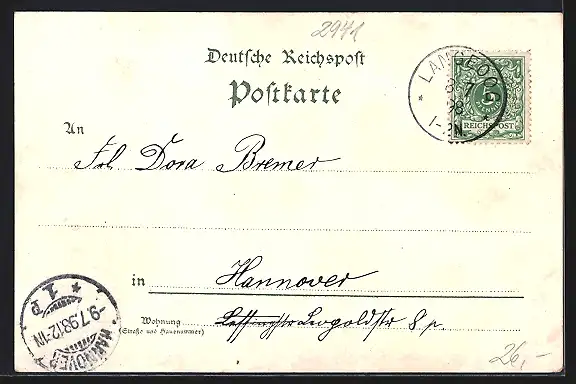 2941
Deutsche Reichspost
Postkarte
An
Frl. Dora Bremer
in Hannover
Wohnung Lessingstr Leopoldstr 8 p.
(Straße und Hausnummer)
REICHSPOST
8 7
98
1-2N
HANNOVER
1 P
-9.7.98.12-1N
26,-